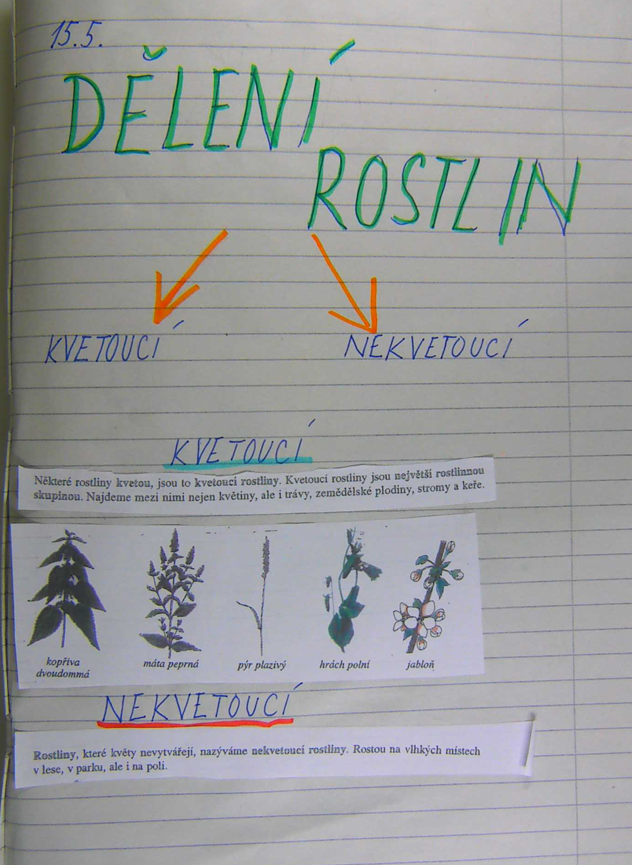 15.5.
DĚLENÍ
ROSTLIN
KVETOUCÍ NEKVETOUCÍ
KVETOUCÍ
Některé rostliny kvetou, jsou to kvetoucí rostliny. Kvetoucí rostliny jsou největší rostlinnou
skupinou. Najdeme mezi nimi nejen květiny, ale i trávy, zemědělské plodiny, stromy a keře.
kopřiva
dvoudommá
máta peprná
pýr plazivý
hrách polní
jabloň
NEKVETOUCÍ
Rostliny, které květy nevytvářejí, nazýváme nekvetoucí rostliny. Rostou na vlhkých místech
v lese, v parku, ale i na poli.